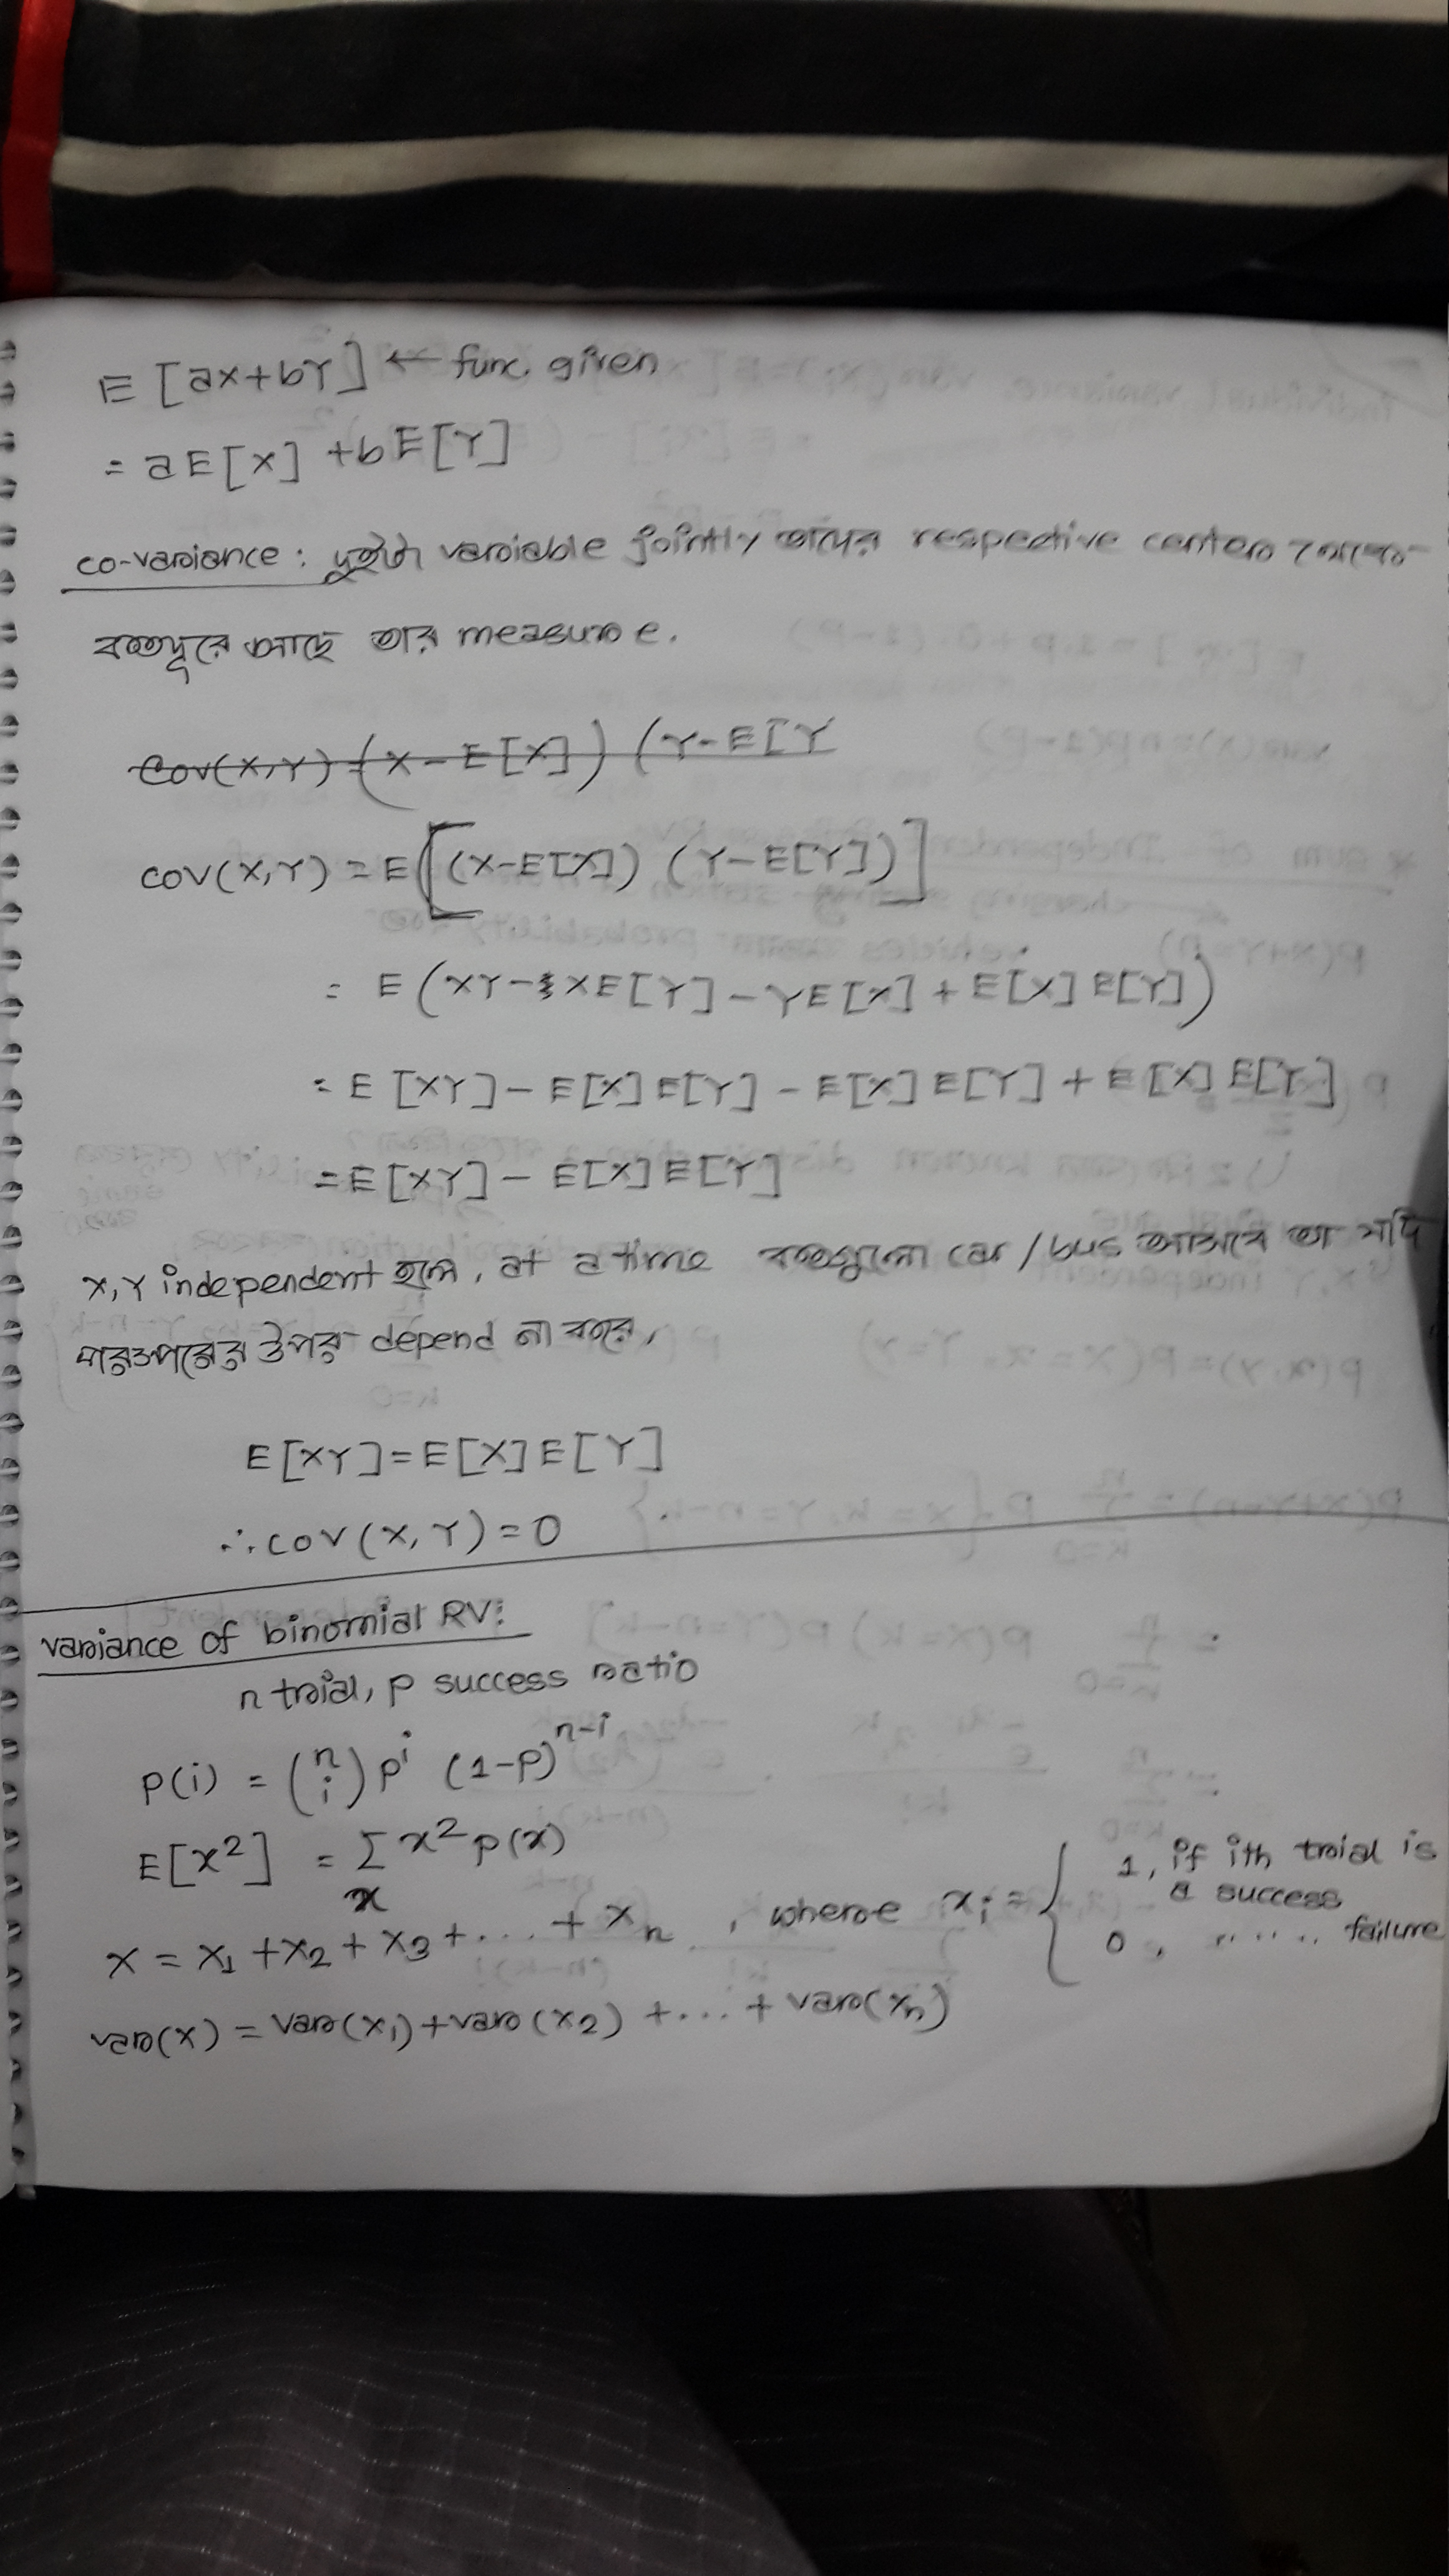 E [ax+bY] ← func. given
= aE[X] + bE[Y]
co-variance : দুইটা variable jointly তাদের respective center থেকে
কতদূরে আছে তার measure.
Cov(X,Y) = (X-E[X]) (Y-E[Y
COV(X,Y) = E[(X-E[X]) (Y-E[Y])]
= E (XY - XE[Y] - YE[X] + E[X] E[Y])
= E [XY] - E[X] E[Y] - E[X] E[Y] + E[X] E[Y]
= E[XY] - E[X] E[Y]
X,Y independent হলে, at a time কতগুলো car/bus আসবে তা যদি
পরস্পরের উপর depend না করে,
E[XY] = E[X] E[Y]
∴ COV(X, Y) = 0
variance of binomial RV:
n trial, p success ratio
P(i) = (n i) p^i (1-p)^n-i
E[x²] = Σ x² p(x)
x
X = X₁ + X₂ + X₃ + ... + Xₙ , where xᵢ = { 1, if ith trial is
a success
0, " " " " failure
var(X) = var(X₁) + var(X₂) + ... + var(Xₙ)